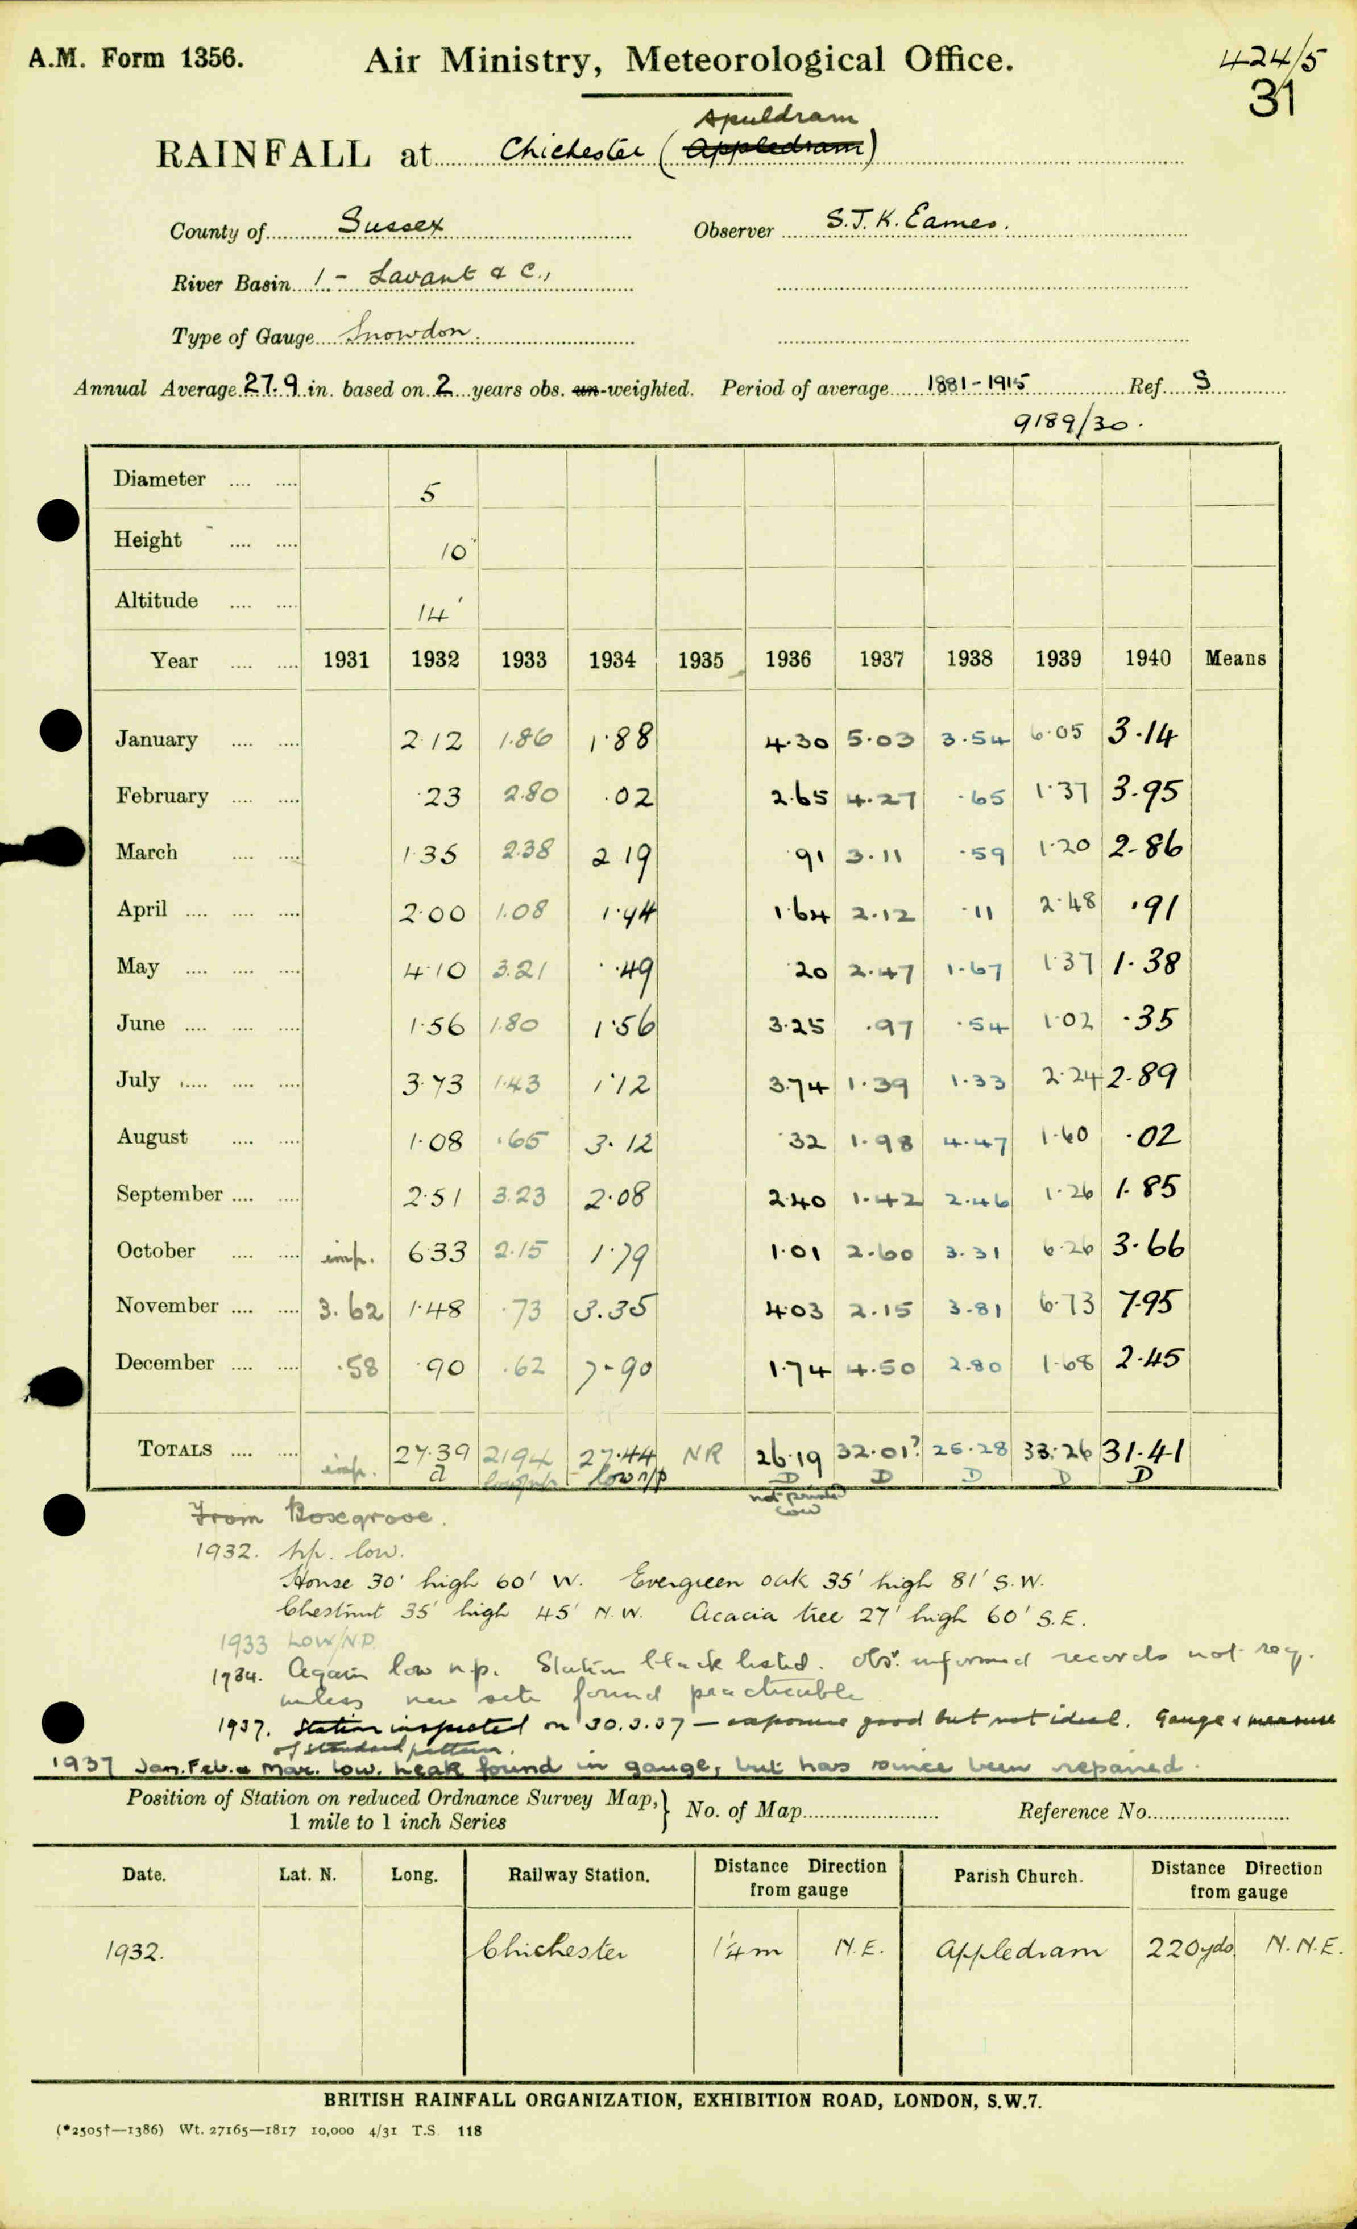 A.M. Form 1356. Air Ministry, Meteorological Office. 424/5
31
Apuldram
RAINFALL at Chichester (Appledram)
County of Sussex Observer S.J.K. Eames.
River Basin 1 - Lavant & C.,
Type of Gauge Snowdon.
Annual Average 27.9 in. based on 2 years obs. un-weighted. Period of average 1881-1915 Ref. S
9189/30.
Diameter .... .... 5
Height .... .... 10
Altitude .... .... 14'
Year .... .... 1931 1932 1933 1934 1935 1936 1937 1938 1939 1940 Means
January .... .... 2.12 1.86 1.88 4.30 5.03 3.54 6.05 3.14
February .... .... .23 2.80 .02 2.65 4.27 .65 1.37 3.95
March .... .... 1.35 2.38 2 19 .91 3.11 .59 1.20 2.86
April .... .... .... 2.00 1.08 1.94 1.64 2.12 .11 2.48 .91
May .... .... .... 4.10 3.21 .49 .20 2.47 1.67 1.37 1.38
June .... .... .... 1.56 1.80 1.56 3.25 .97 .54 1.02 .35
July .... .... .... 3.73 1.43 1.12 3.74 1.39 1.33 2.24 2.89
August .... .... 1.08 .65 3.12 .32 1.98 4.47 1.60 .02
September .... .... 2.51 3.23 2.08 2.40 1.42 2.46 1.26 1.85
October .... .... imp. 6.33 2.15 1.79 1.01 2.60 3.31 6.26 3.66
November .... .... 3.62 1.48 .73 3.35 4.03 2.15 3.81 6.73 7.95
December .... .... .58 .90 .62 7.90 1.74 4.50 2.80 1.68 2.45
TOTALS .... .... imp. 27.39 21.94 27.44 NR 26.19 32.01? 25.28 33.26 31.41
a low/np low n/p D D D D D
not printed
low
From Boxgrove.
1932. np. low.
House 30' high 60' W. Evergreen oak 35' high 81' S.W.
Chestnut 35' high 45' N.W. Acacia tree 27' high 60' S.E.
1933 LOW/N.P.
1934. Again low n.p. Station black listed. Obsr. informed records not req.
unless new site found practicable
1937. Station inspected on 30.3.37 — exposure good but not ideal. Gauge & measure
of standard pattern.
1937 Jan. Feb. & Mar. low. Leak found in gauge, but has since been repaired.
Position of Station on reduced Ordnance Survey Map, 1 mile to 1 inch Series } No. of Map Reference No.
Date. Lat. N. Long. Railway Station. Distance Direction from gauge Parish Church. Distance Direction from gauge
1932. Chichester 1¼m N.E. Appledram 220yds N.N.E.
BRITISH RAINFALL ORGANIZATION, EXHIBITION ROAD, LONDON, S.W.7.
(*2505†—1386) Wt. 27165—1817 10,000 4/31 T.S. 118